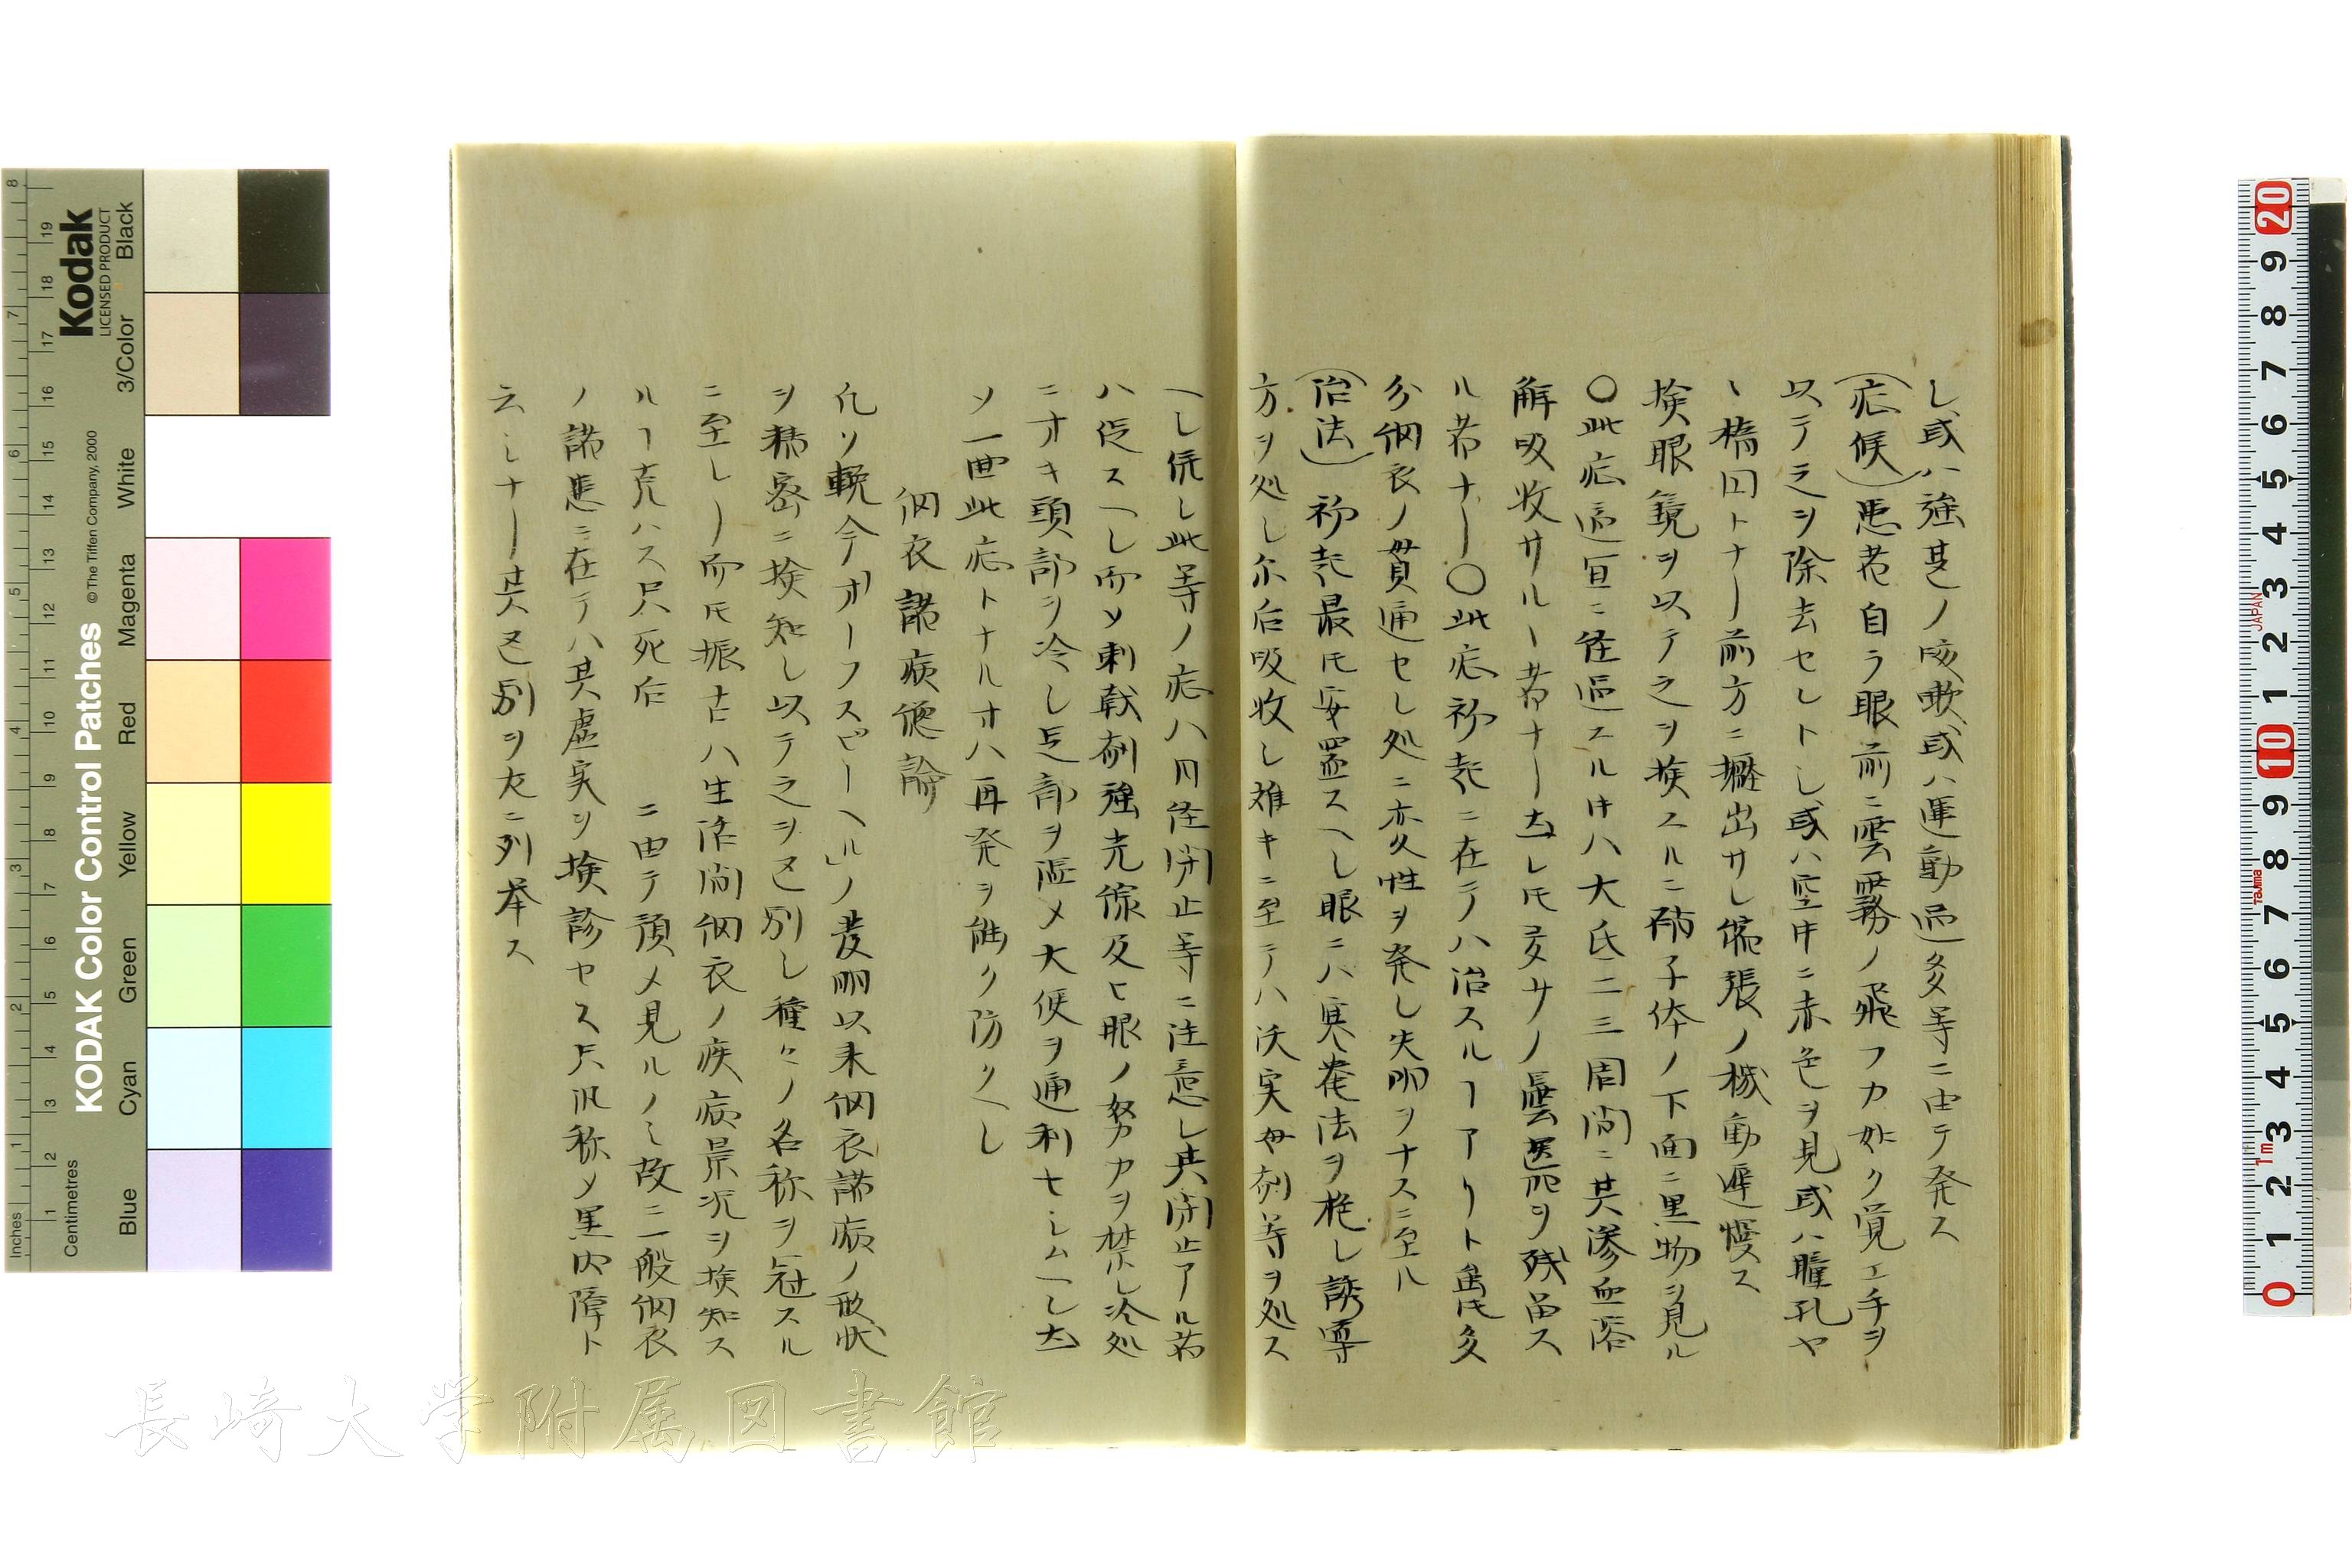 シ或ハ強甚ノ咳嗽或ハ運動過多等ニ由テ発ス
(症候)患者自ラ眼前ニ雲霧ノ飛フカ如ク覚エ手ヲ
以テ之ヲ除去セントシ或ハ空中ニ赤色ヲ見或ハ瞳孔ヤ
ヽ楕円トナリ前方ニ擁出サレ縮張ノ機動遅慢ス
検眼鏡ヲ以テ之ヲ検スルニ硝子体ノ下面ニ黒物ヲ見ル
〇此症適宜ニ経過スル時ハ大氐二三周間ニ其滲血溶
解吸收サル丶者ナリ去レ𪜈多少ノ曇翳ヲ残畄ス
ル者ナリ〇此症初起ニ在テハ治スルヿアリト虽𪜈多
分網衣ノ貫通セシ処ニ変性ヲ発シ失明ヲナスニ至ル
(治法)初起最𪜈安置スヘシ眼ニハ寒罨法ヲ施シ誘導
方ヲ処シ尓后吸收シ難キニ至テハ沃実母剤等ヲ処ス
ヘシ併シ此等ノ症ハ月経閉止等ニ注意シ其閉止アル者
ハ促スヘシ而ソ刺戟剤強光線及ヒ眼ノ努力ヲ禁シ冷処
ニオキ頭部ヲ冷シ足部ヲ温メ大便ヲ通利セシムヘシ去
ソ一囬此症トナルオハ再発ヲ能ク防クヘシ
網衣諸病総論
凡ソ輓今オーフスピーヘル」ノ発明以来網衣諸病ノ形状
ヲ精密ニ検知シ以テ之ヲ区別シ種々ノ名称ヲ冠スル
ニ至レリ而𪜈振古ハ生活間網衣ノ疾病景况ヲ検知ス
ルヿ克ハス只死后　ニ由テ預メ見ルノミ故ニ一般網衣
ノ諸患ニ在テハ其虚実ヲ検診セス只汎称メ黒内障ト
云シナリ其区別ヲ左ニ列挙ス
長崎大学附属図書館
Kodak
LICENSED PRODUCT
KODAK Color Control Patches
© The Tiffen Company, 2000
Inches
Centimetres
Blue
Cyan
Green
Yellow
Red
Magenta
White
3/Color
Black
JAPAN
Tajima
1m